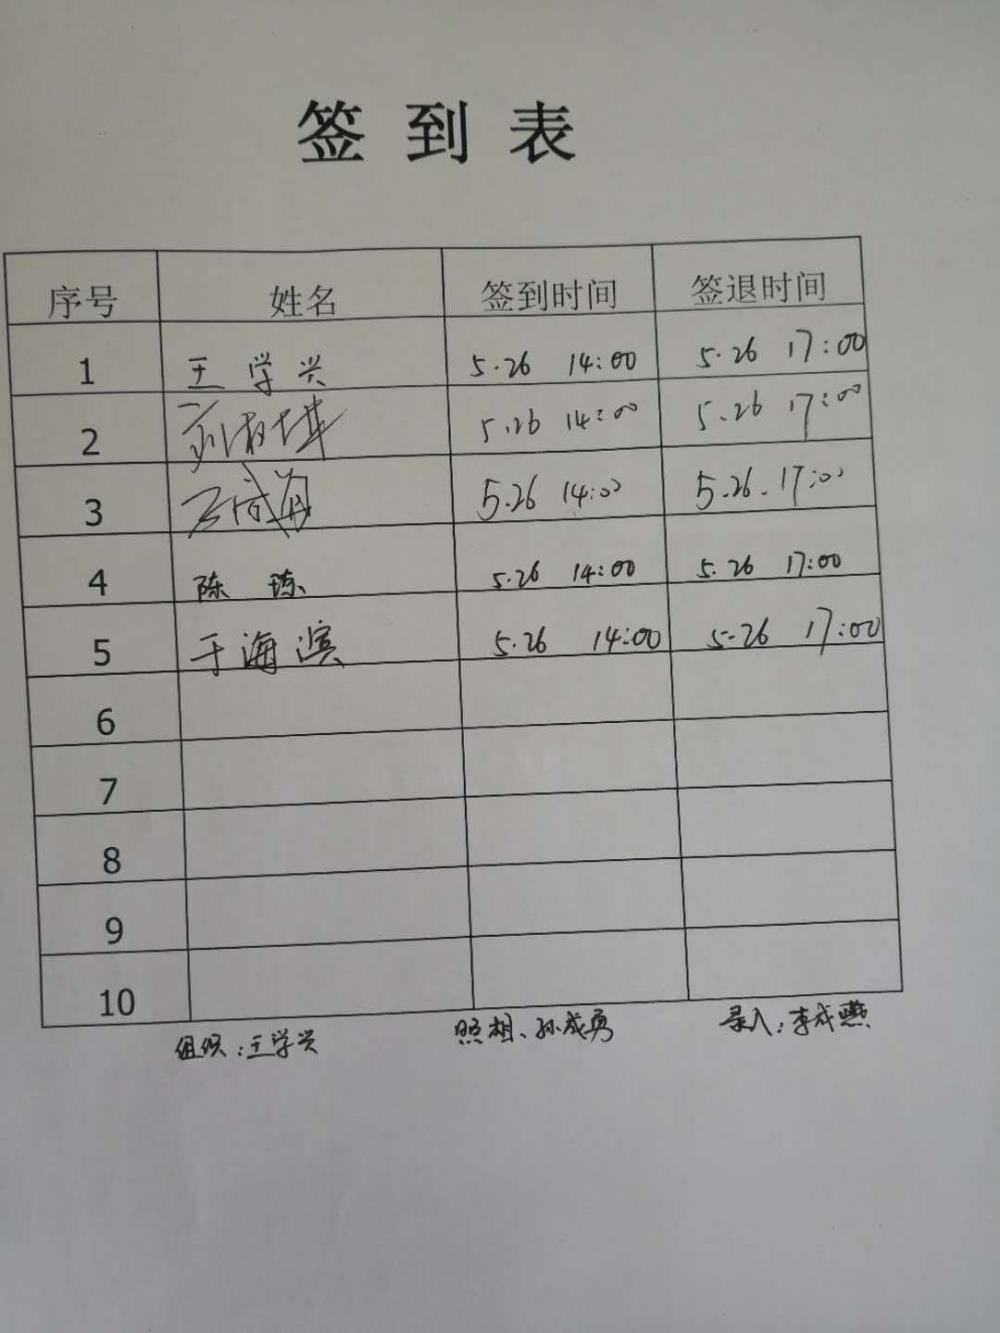 签到表
序号 姓名 签到时间 签退时间
1 王学兴 5.26 14:00 5.26 17:00
2 5.26 14:00 5.26 17:00
3 5.26 14:00 5.26. 17:00
4 陈 5.26 14:00 5.26 17:00
5 于海滨 5.26 14:00 5.26 17:00
6
7
8
9
10
组织:王学兴 照相、孙成勇 录入:李成燕